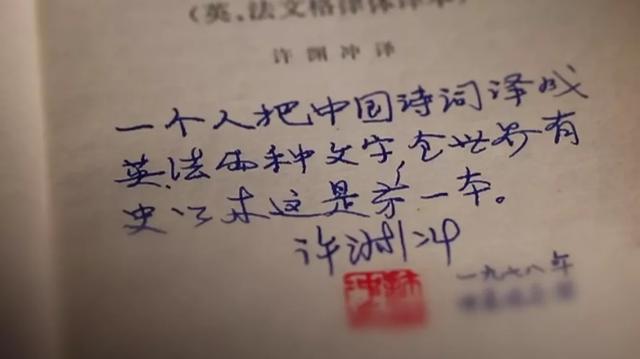 (英、法文格律体译本)
许渊冲译
一个人把中国诗词译成
英、法两种文字,全世界有
史以来这是第一本。
许渊冲
一九七八年